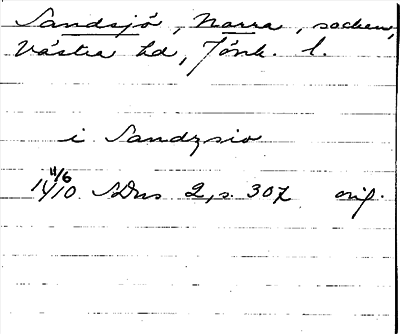 Sandsjö, Norra, socken,
Västra hd, Jönk. l.
i Sandzsio
14/6 1410 SDns 2, s. 307 orig.